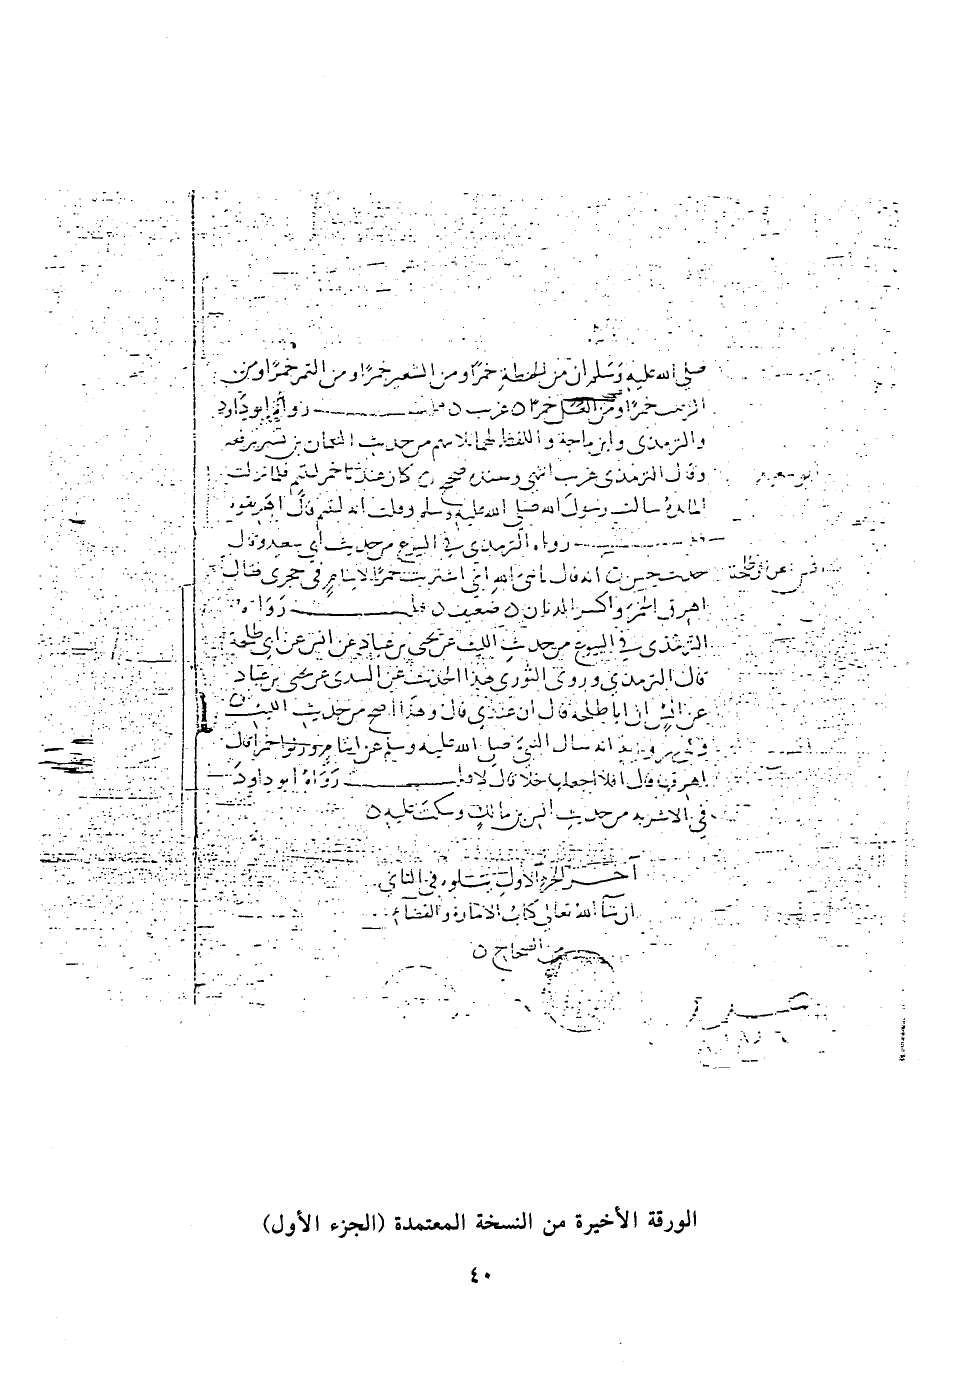 صلى الله عليه وسلم ان من الحنطة خمرًا ومن الشعير خمرًا ومن التمر خمرًا ومن
الزبيب خمرًا ومن العسل خمرًا ٥ غريب ٥ قلت رواه ابو داود
والترمذى وابن ماجة واللفظ لهما ثلاثتهم من حديث النعمان بن بشير يرفعه
وقال الترمذى غريب انتهى وسنده صحيح ٥ كان عندنا خمر ليتيم فلما نزلت
المائدة سالت رسول الله صلى الله عليه وسلم وقلت انه ليتيم قال اهريقوه
قلت رواه الترمذى في البيوع من حديث أبي سعيد وقال
ابو سعيد
حديث حسن ٥ انه قال يا نبى الله اني اشتريت خمرًا لايتام في حجرى فقال
انس عن ابى طلحة
اهرق الخمر واكسر الدنان ٥ ضعيف ٥ قلت رواه
الترمذى في البيوع من حديث الليث عن يحيى بن عباد عن انس عن ابى طلحة
قال الترمذي وروى الثوري هذا الحديث عن السدى عن يحيى بن عباد
عن انس ان ابا طلحة قال ان عندي قال وهذا اصح من حديث الليث ٥
وفي رواية انه سال النبي صلى الله عليه وسلم عن ايتام ورثوا خمرا قال
اهرقها قال افلا اجعلها خلا قال لا قلت رواه ابو داود
في الاشربه من حديث انس بن مالك وسكت عليه ٥
آخر الجزء الاول يتلوه في الثاني
ان شا الله تعالى كتاب الامارة والقضاء
من الصحاح ٥
الورقة الأخيرة من النسخة المعتمدة (الجزء الأول)
٤٠